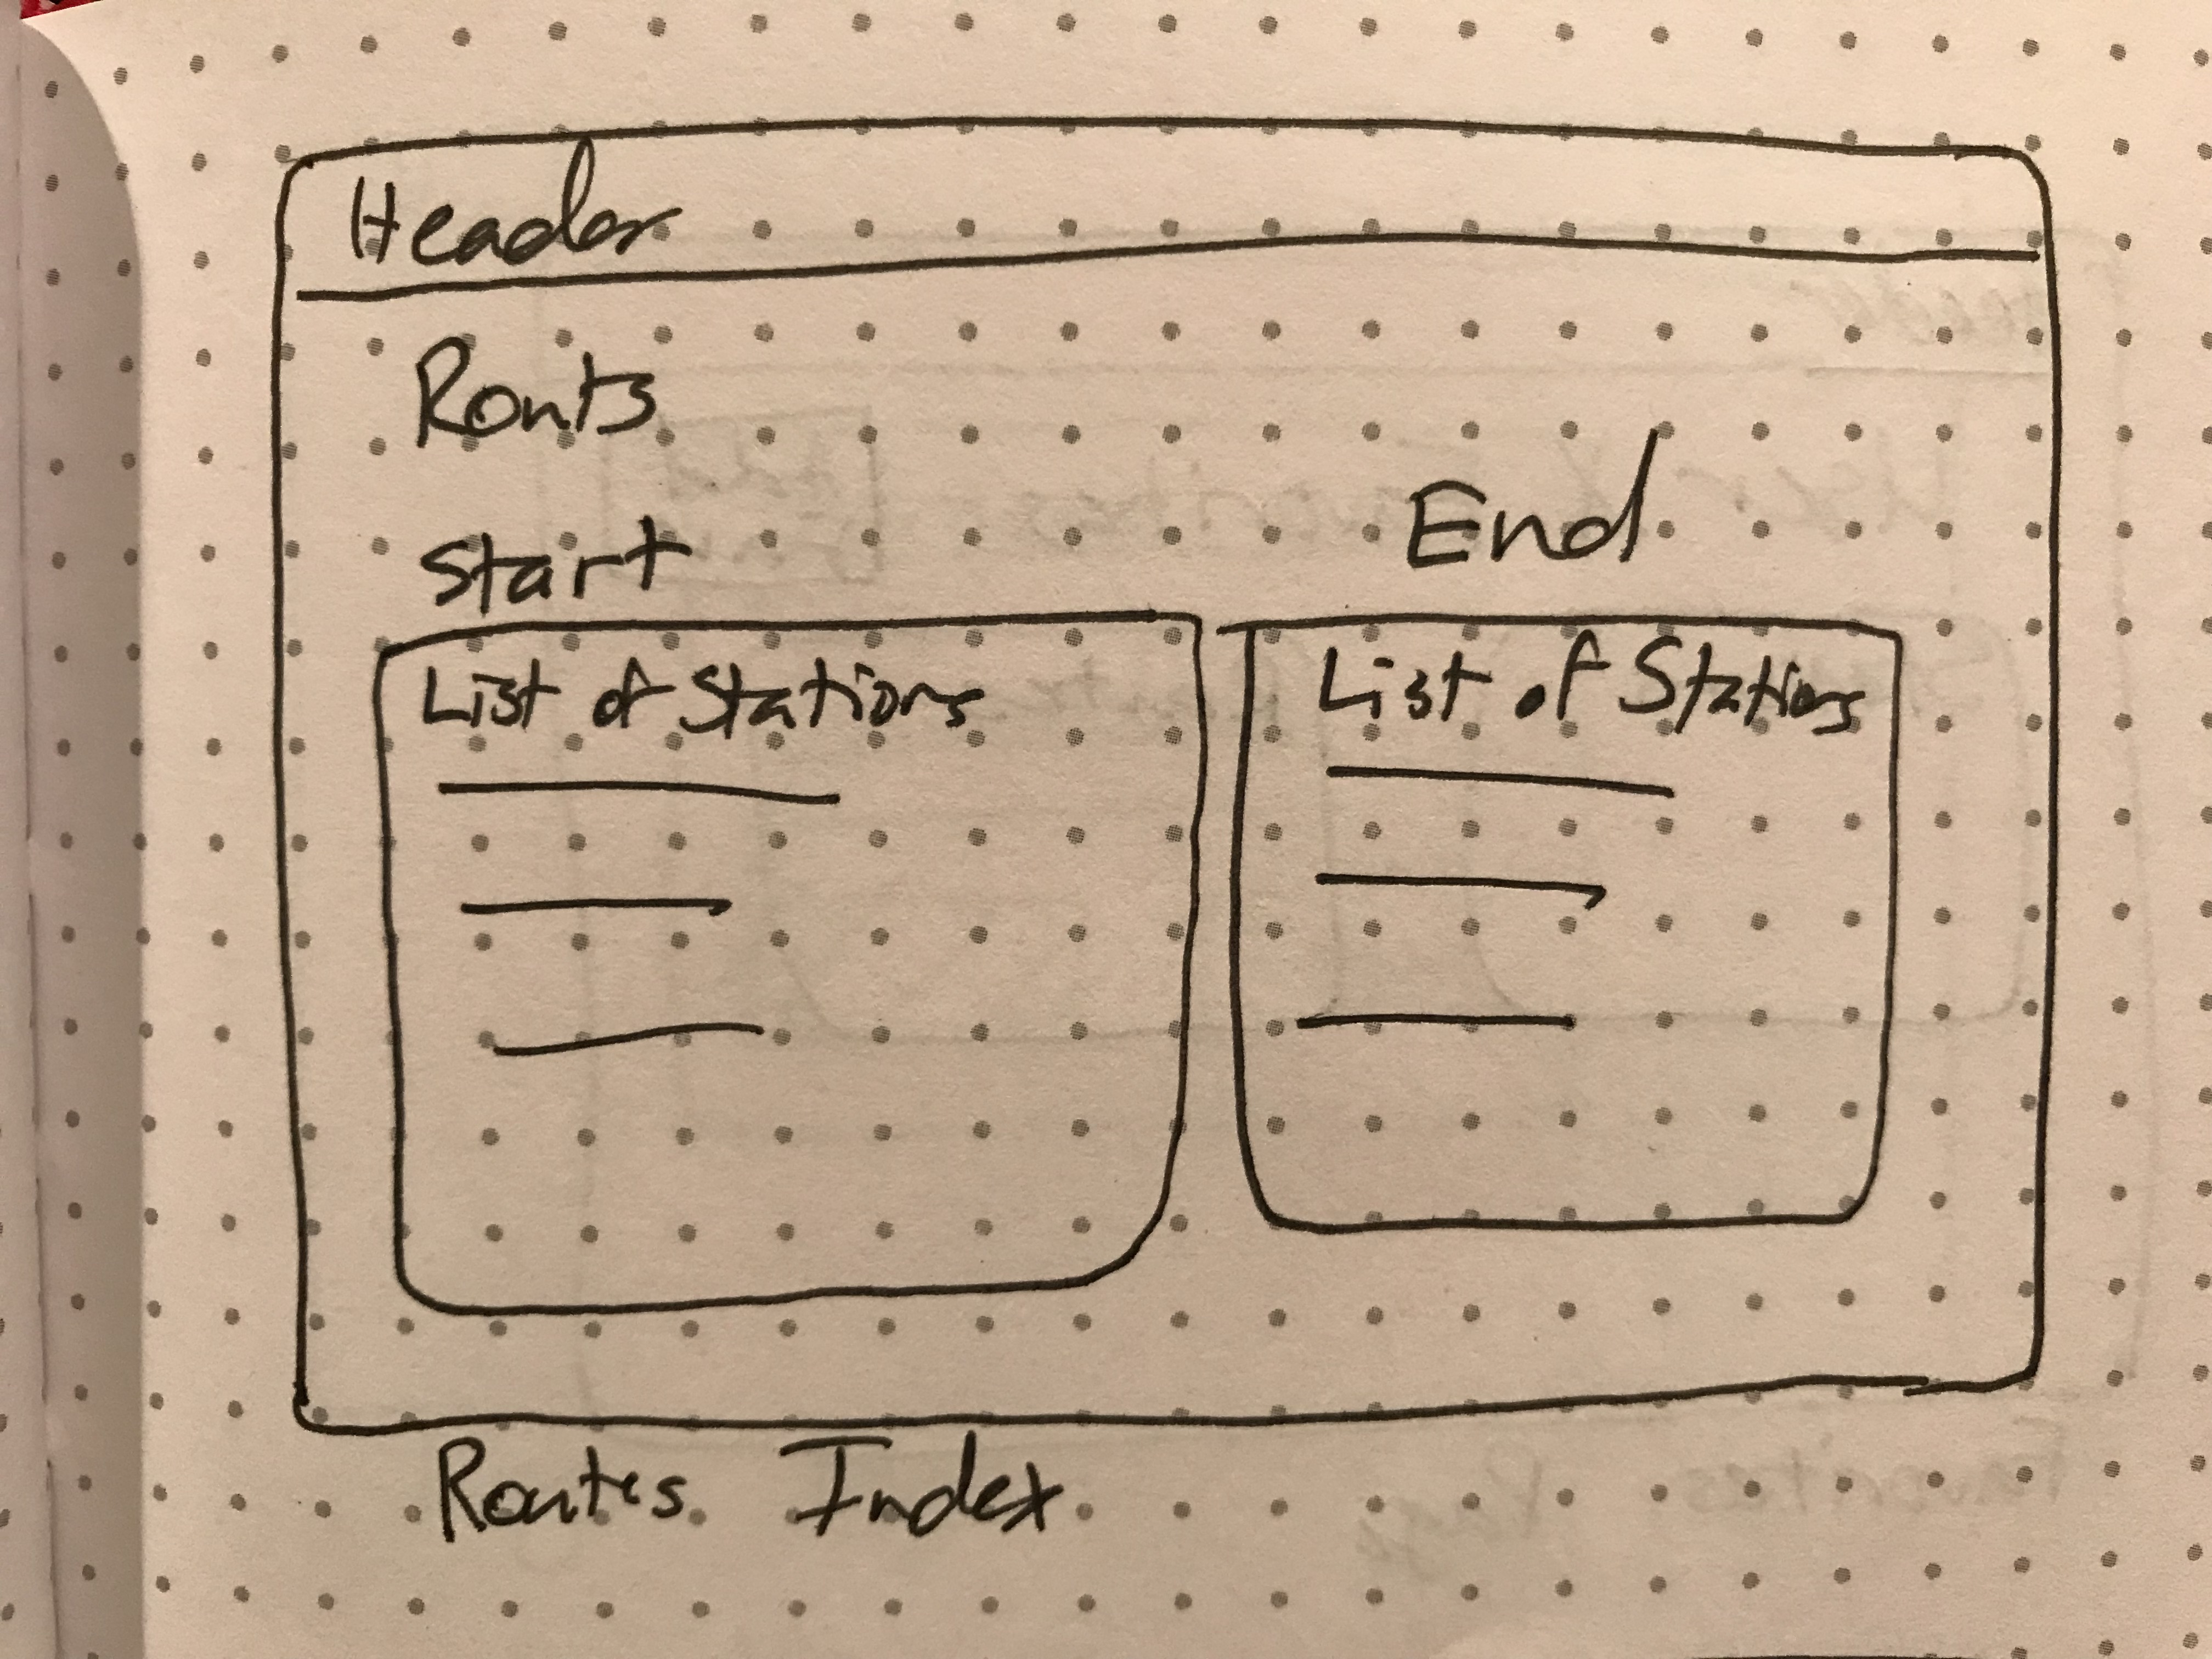 Header
Routs
Start
End
List of Stations
List of Stations
Routes Index